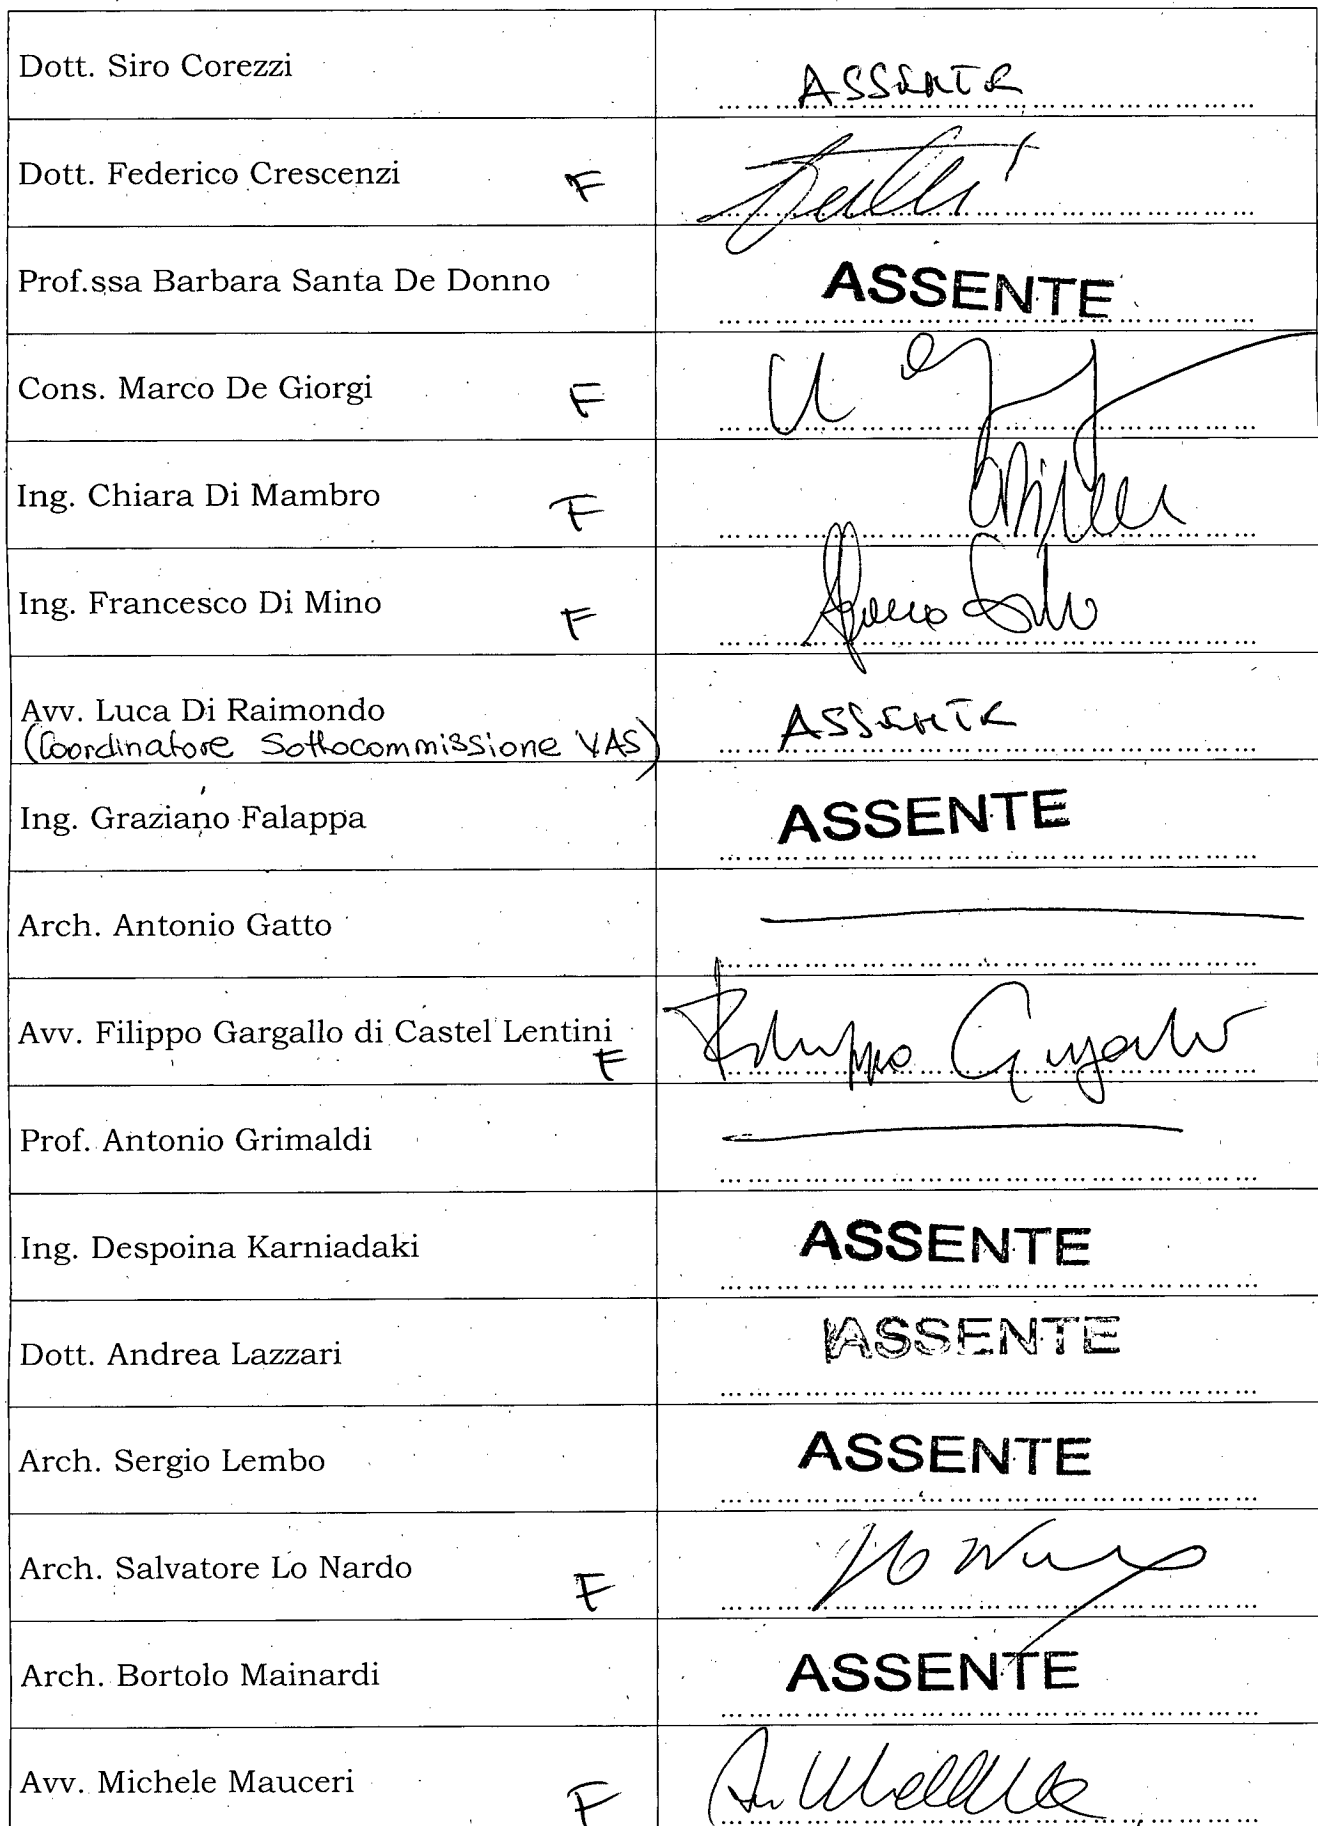 Dott. Siro Corezzi ASSENTE
Dott. Federico Crescenzi F
Prof.ssa Barbara Santa De Donno ASSENTE
Cons. Marco De Giorgi F
Ing. Chiara Di Mambro F
Ing. Francesco Di Mino F
Avv. Luca Di Raimondo ASSENTE
(Coordinatore Sottocommissione VAS)
Ing. Graziano Falappa ASSENTE
Arch. Antonio Gatto
Avv. Filippo Gargallo di Castel Lentini F
Filippo Gargallo
Prof. Antonio Grimaldi
Ing. Despoina Karniadaki ASSENTE
Dott. Andrea Lazzari ASSENTE
Arch. Sergio Lembo ASSENTE
Arch. Salvatore Lo Nardo F
Arch. Bortolo Mainardi ASSENTE
Avv. Michele Mauceri F